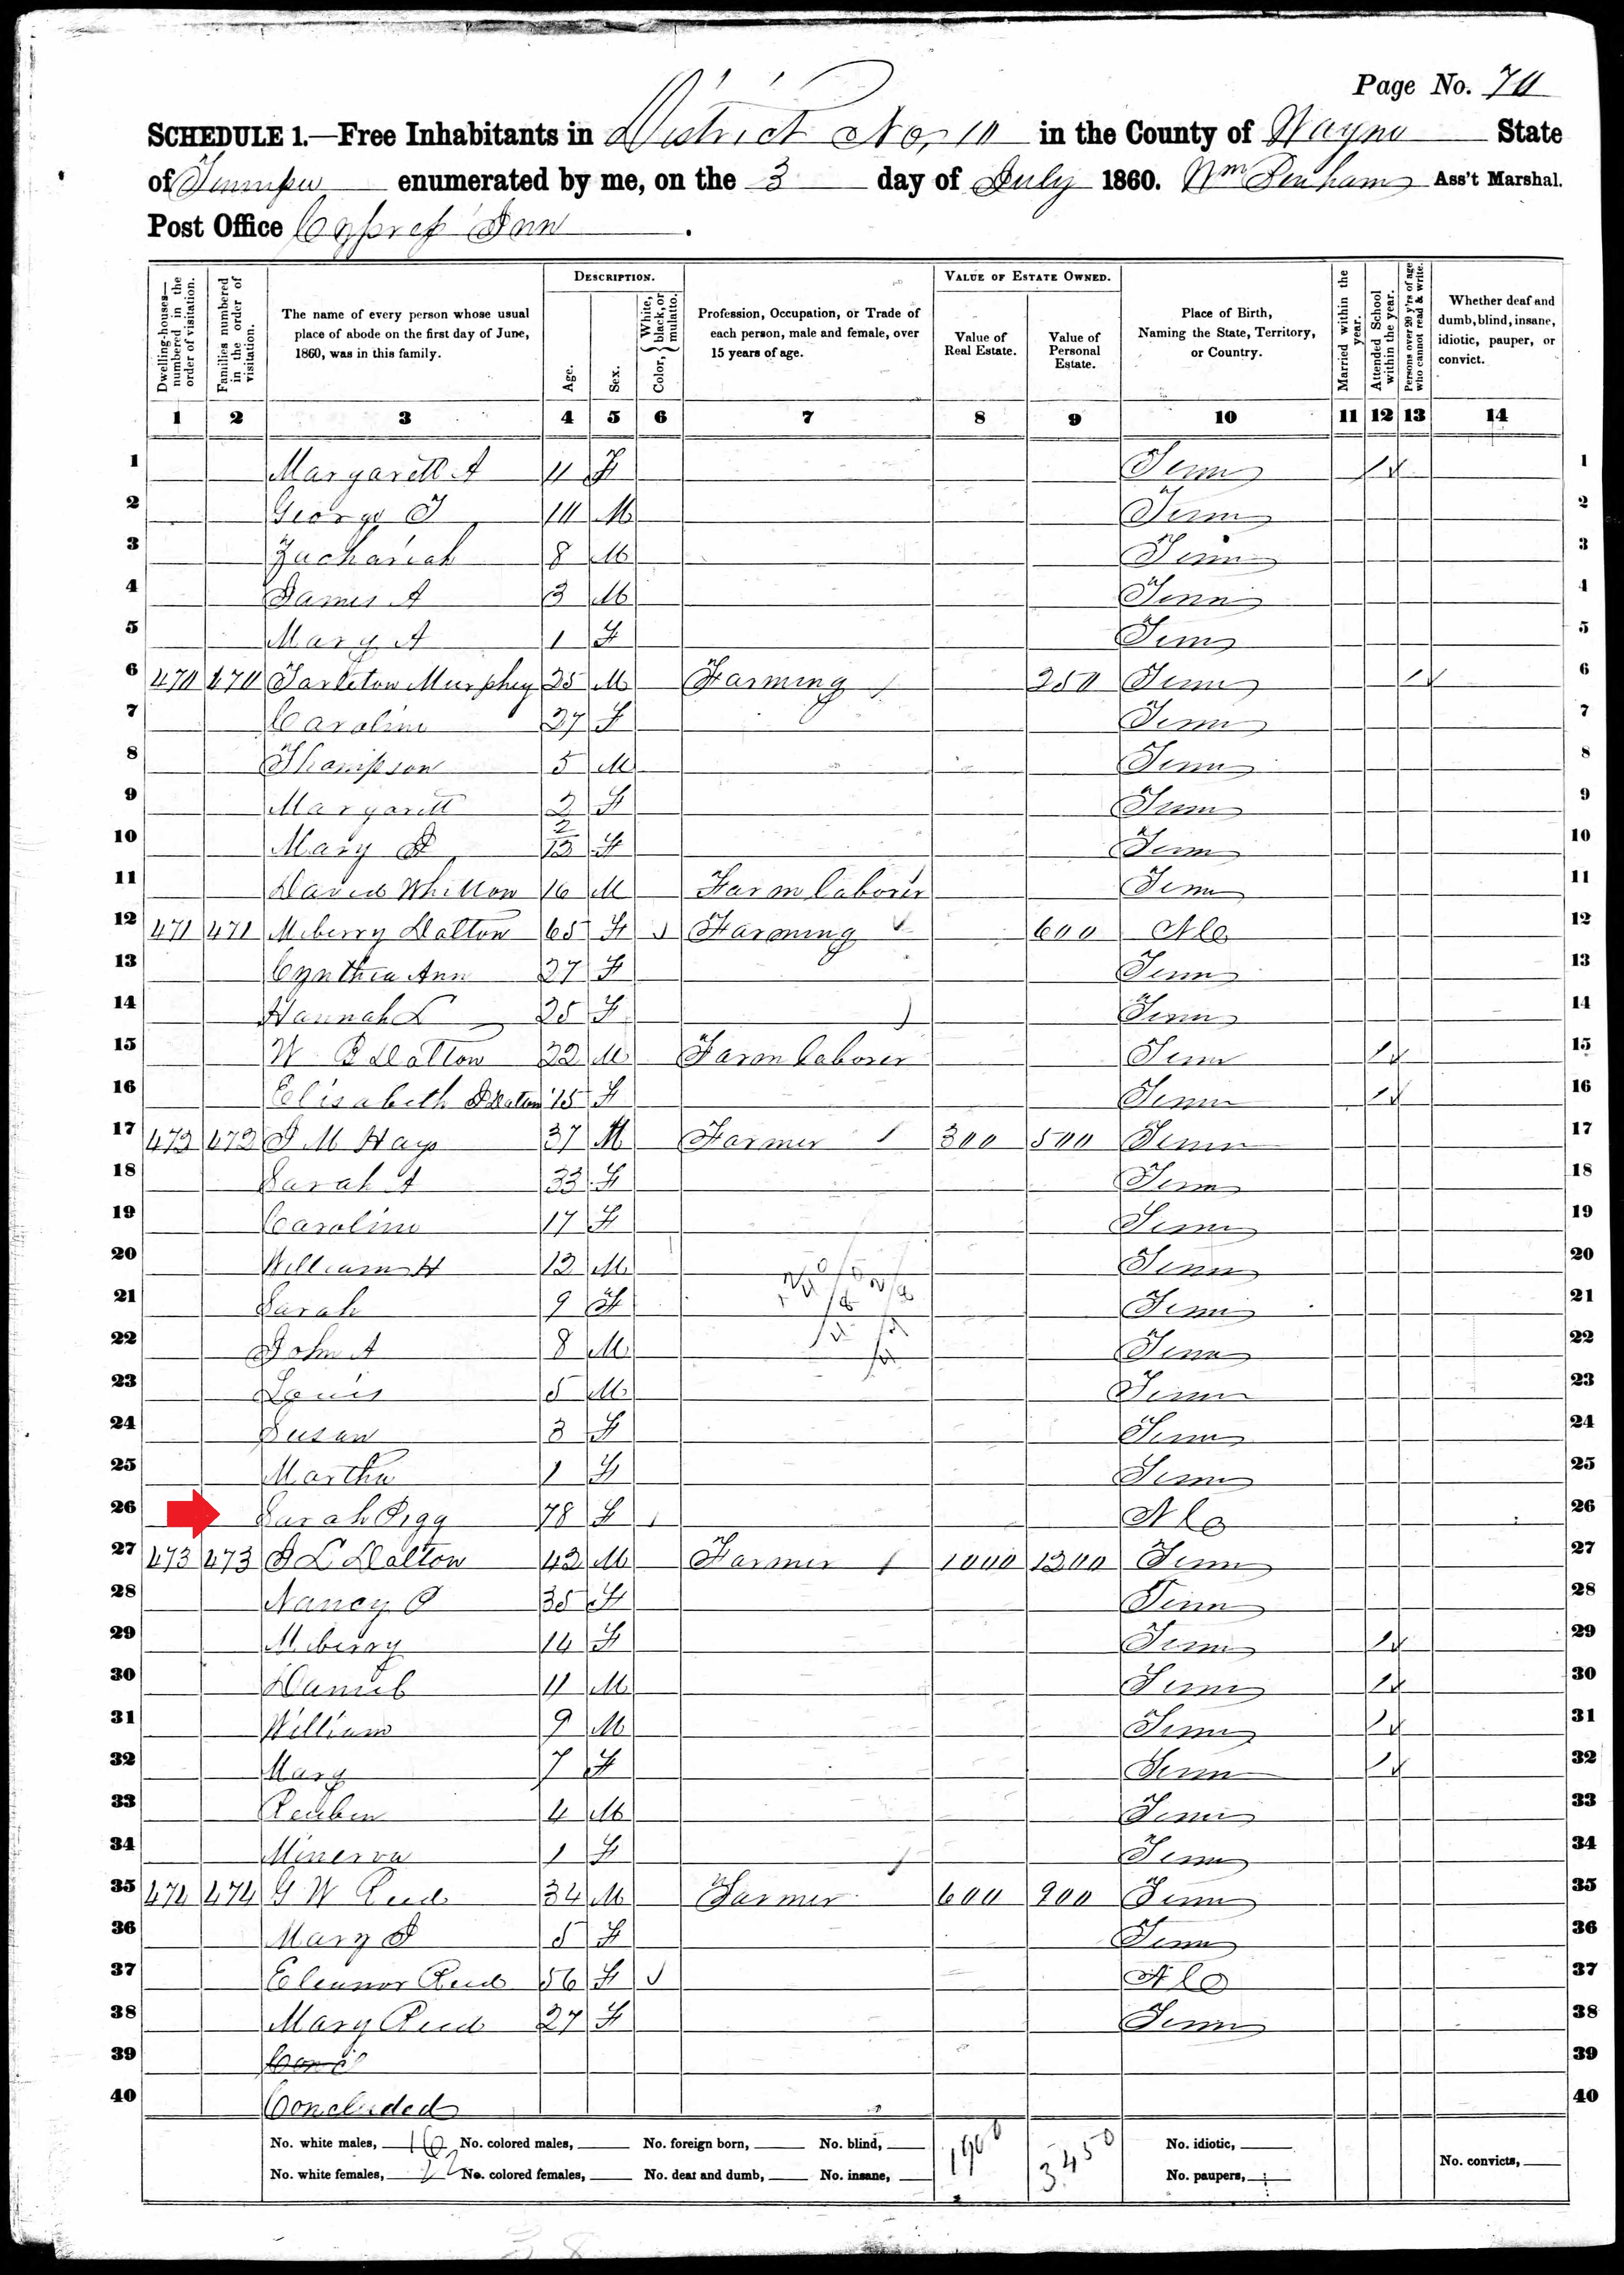 Page No. 70
SCHEDULE 1.—Free Inhabitants in District No. 10 in the County of Wayne State
of Tennessee enumerated by me, on the 3 day of July 1860. Wm Ass't Marshal.
Post Office Cypress Inn.
DESCRIPTION. VALUE OF ESTATE OWNED.
Dwelling-houses—numbered in the order of visitation. Families numbered in the order of visitation. The name of every person whose usual place of abode on the first day of June, 1860, was in this family. Age. Sex. Color, { White, black, or mulatto. Profession, Occupation, or Trade of each person, male and female, over 15 years of age. Value of Real Estate. Value of Personal Estate. Place of Birth, Naming the State, Territory, or Country. Married within the year. Attended School within the year. Persons over 20 y'rs of age who cannot read & write. Whether deaf and dumb, blind, insane, idiotic, pauper, or convict.
1 2 3 4 5 6 7 8 9 10 11 12 13 14
1 Margarett A 11 F Tenn / 1
2 George T 10 M Tenn 2
3 Zachariah 8 M Tenn 3
4 James A 3 M Tenn 4
5 Mary A 1 F Tenn 5
6 470 470 Tarleton Murphey 25 M Farming 250 Tenn / 6
7 Caroline 27 F Tenn 7
8 Thompson 5 M Tenn 8
9 Margarett 2 F Tenn 9
10 Mary J 2/12 F Tenn 10
11 David Whitton 16 M Farm laborer Tenn 11
12 471 471 Meberry Dalton 65 F Farming 600 N C 12
13 Cynthia Ann 27 F Tenn 13
14 Hannah L 25 F Tenn 14
15 W B Dalton 22 M Farm laborer Tenn / 15
16 Elisabeth J Dalton 15 F Tenn / 16
17 472 472 J M Hays 37 M Farmer 300 500 Tenn 17
18 Sarah A 33 F Tenn 18
19 Caroline 17 F Tenn 19
20 William H 12 M Tenn 20
21 Sarah 9 F Tenn 21
22 John A 8 M Tenn 22
23 Louis 5 M Tenn 23
24 Susan 3 F Tenn 24
25 Martha 1 F Tenn 25
26 Sarah Pigg 78 F N C 26
27 473 473 J L Dalton 42 M Farmer 1000 1200 Tenn 27
28 Nancy P 35 F Tenn 28
29 Meberry 14 F Tenn / 29
30 Daniel 11 M Tenn / 30
31 William 9 M Tenn / 31
32 Mary 7 F Tenn / 32
33 Reuben 4 M Tenn 33
34 Minerva 1 F Tenn 34
35 474 474 G W Reed 34 M Farmer 600 900 Tenn 35
36 Mary J 5 F Tenn 36
37 Eleanor Reed 56 F N C 37
38 Mary Reed 27 F Tenn 38
39 39
40 Concluded 40
No. white males, 16 No. colored males, No. foreign born, No. blind, 1900 3450 No. idiotic,
No. white females, 22 No. colored females, No. deaf and dumb, No. insane, No. paupers, No. convicts,